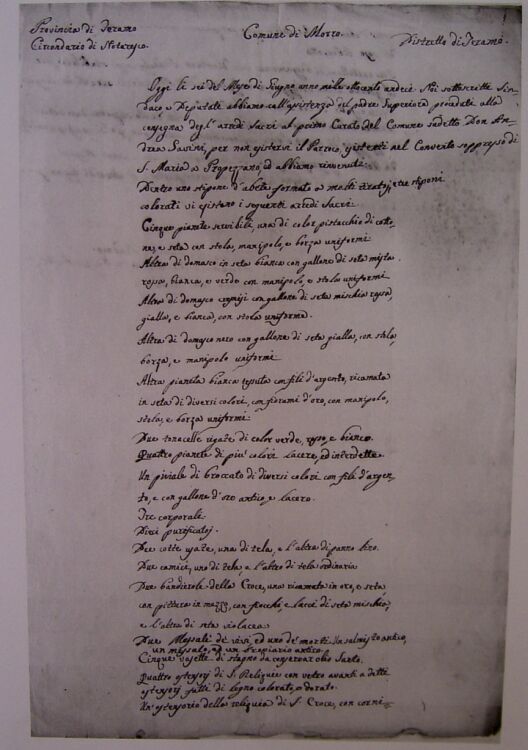 Provincia di Teramo
Circondario di Notaresco.
Comune di Morro.
Distretto di Teramo
Oggi li sei del Mese di Giugno anno mille ottocento undeci. Noi sottoscritti Sin-
daco, e Deputati abbiamo coll'assistenza del padre Superiore proceduto alla
consegna degl'arredi Sacri al primo Curato del Comune sudetto Don An-
drea Savini, per non esistervi il Parroco, esistenti nel Convento soppresso di
S. Maria a Propezzano, ed abbiamo rinvenuti.
Dentro uno stipone d'abete formato a molti tiratoj, e tre stiponi
colorati vi esistono i seguenti arredi Sacri.
Cinque pianete servibile, una di color pistacchio di cotto-
ne, e seta con stola, manipolo, e borza uniformi
Altra di domasco in seta bianca con gallone di seta mista
rossa, bianca, e verde con manipolo, e stola uniformi
Altra di domasco cremisi con gallone di seta mischia rossa,
gialla, e bianca, con stola uniforme.
Altra di domasco nero con gallone di seta gialla, con stola,
borza, e manipolo uniformi
Altra pianeta bianca tessuta con fili d'argento, ricamata
in seta di diversi colori, con fiorami d'oro, con manipolo,
stola, e borza uniformi.
Due tonacelle usate di color verde, rosso, e bianco.
Quattro pianete di più colori lacere, ed interdette
Un piviale di broccato di diversi colori con fili d'argen-
to, e con gallone d'oro antico, e lacero.
Tre corporali.
Dieci purificatoj.
Due cotte usate, una di tela, e l'altra di panno liso.
Due camici, uno di tela, e l'altro di tela ordinaria
Due bandizole della Croce, una ricamata in oro, e seta
con pitture in mezzo, con fiocchi e lacci di seta mischio,
e l'altra di seta violacea
Due Messali de' vivi, ed uno de' morti. Un salmista antico,
un messale, ed un breviario antico.
Cinque vasette di stagno da conservar olio Santo.
Quattro ostensorj di S. Reliquie con vetro avanti a detti
ostensorj tutti di legno colorato, e dorato.
Un ostensorio della reliquia di S. Croce, con corni-